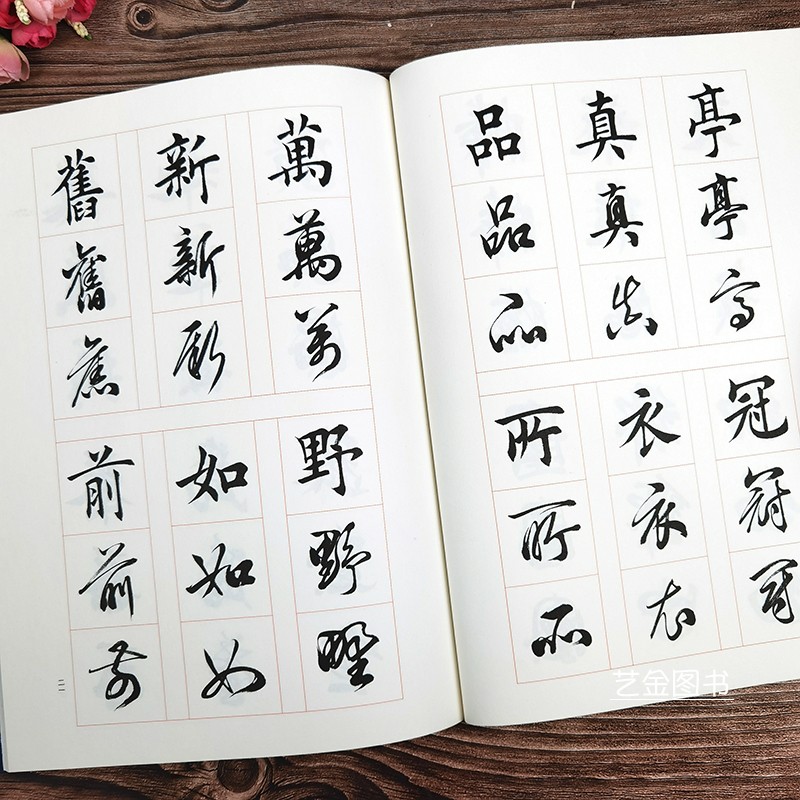 萬萬萬
新新新
舊舊舊
野野野
如如如
前前前
二二
亭亭亭
真真真
品品品
冠冠冠
衣衣衣
所所所
艺金图书